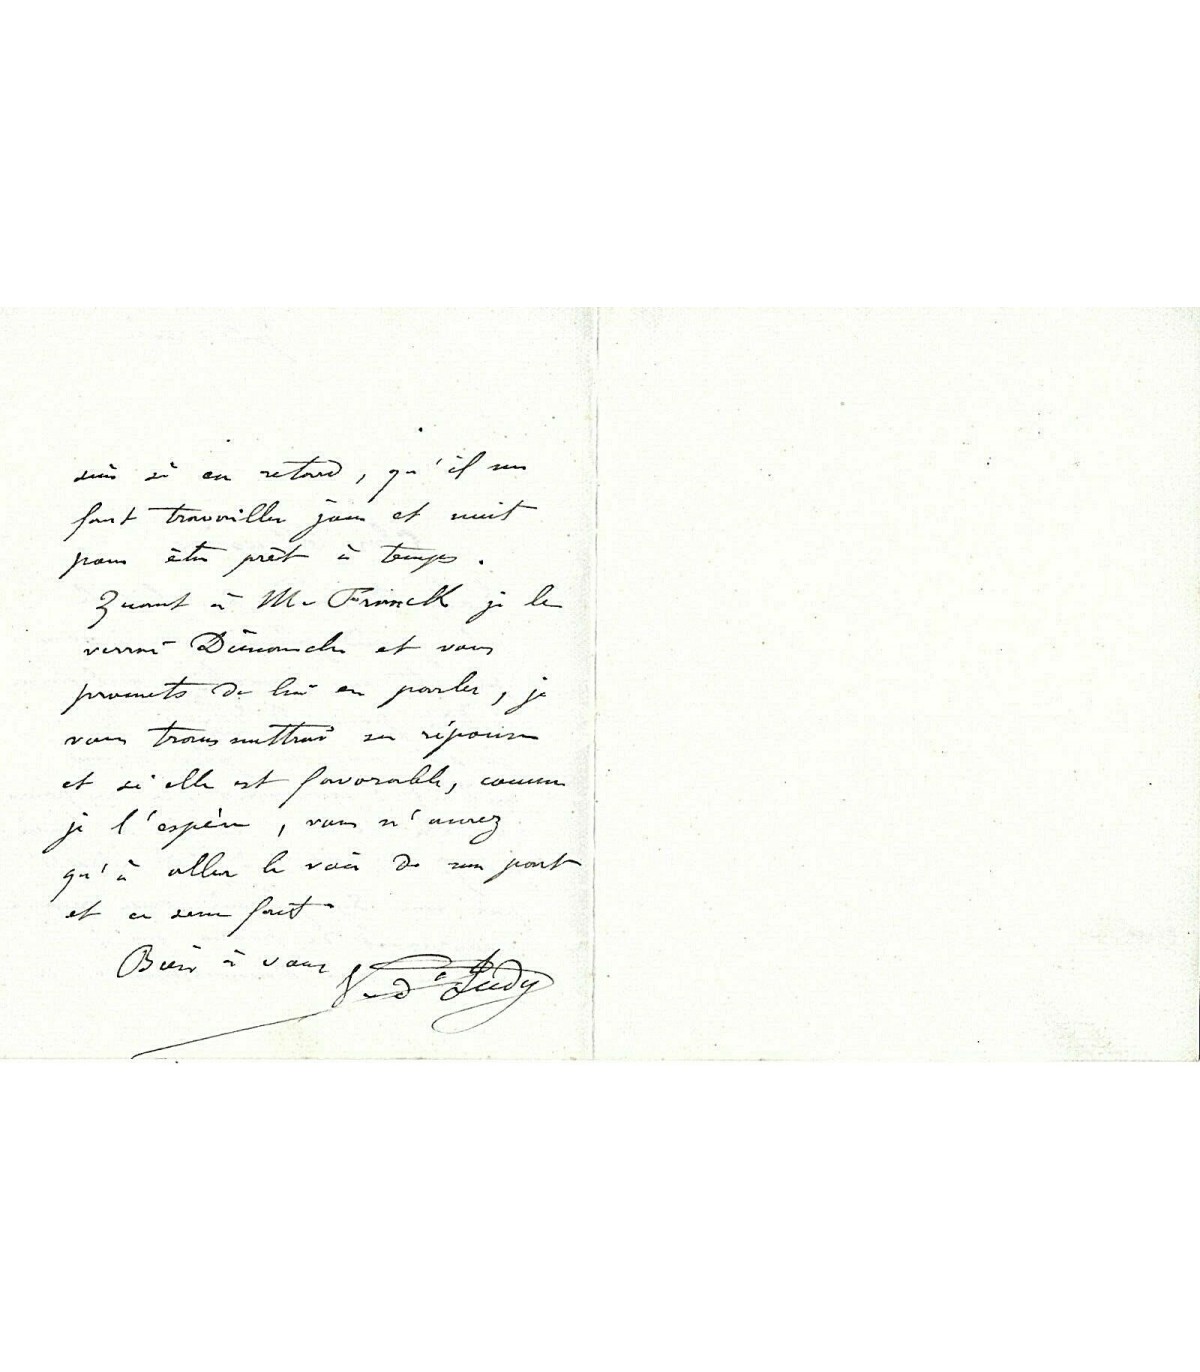 suis si en retard, qu'il me
faut travailler jour et nuit
pour être prêt à temps.
Quant à Mr Franck je le
verrai Dimanche et vous
promets de lui en parler, je
vous transmettrai sa réponse
et si elle est favorable, comme
je l'espère, vous n'aurez
qu'à aller le voir de ma part
et ce sera fait.
Bien à vous V. d'Indy